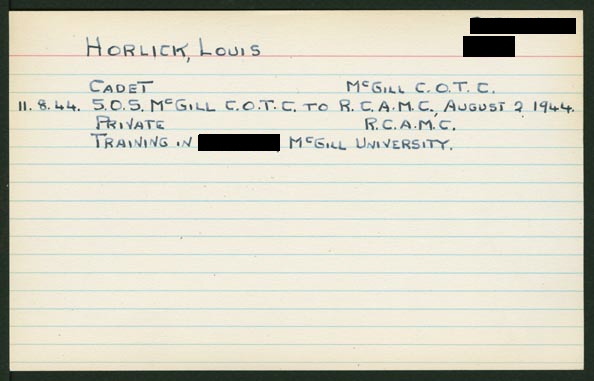 HORLICK, LOUIS
CADET McGILL C.O.T.C.
11.8.44. S.O.S. McGILL C.O.T.C. TO R.C.A.M.C, AUGUST 2 1944.
PRIVATE R.C.A.M.C.
TRAINING IN McGILL UNIVERSITY.